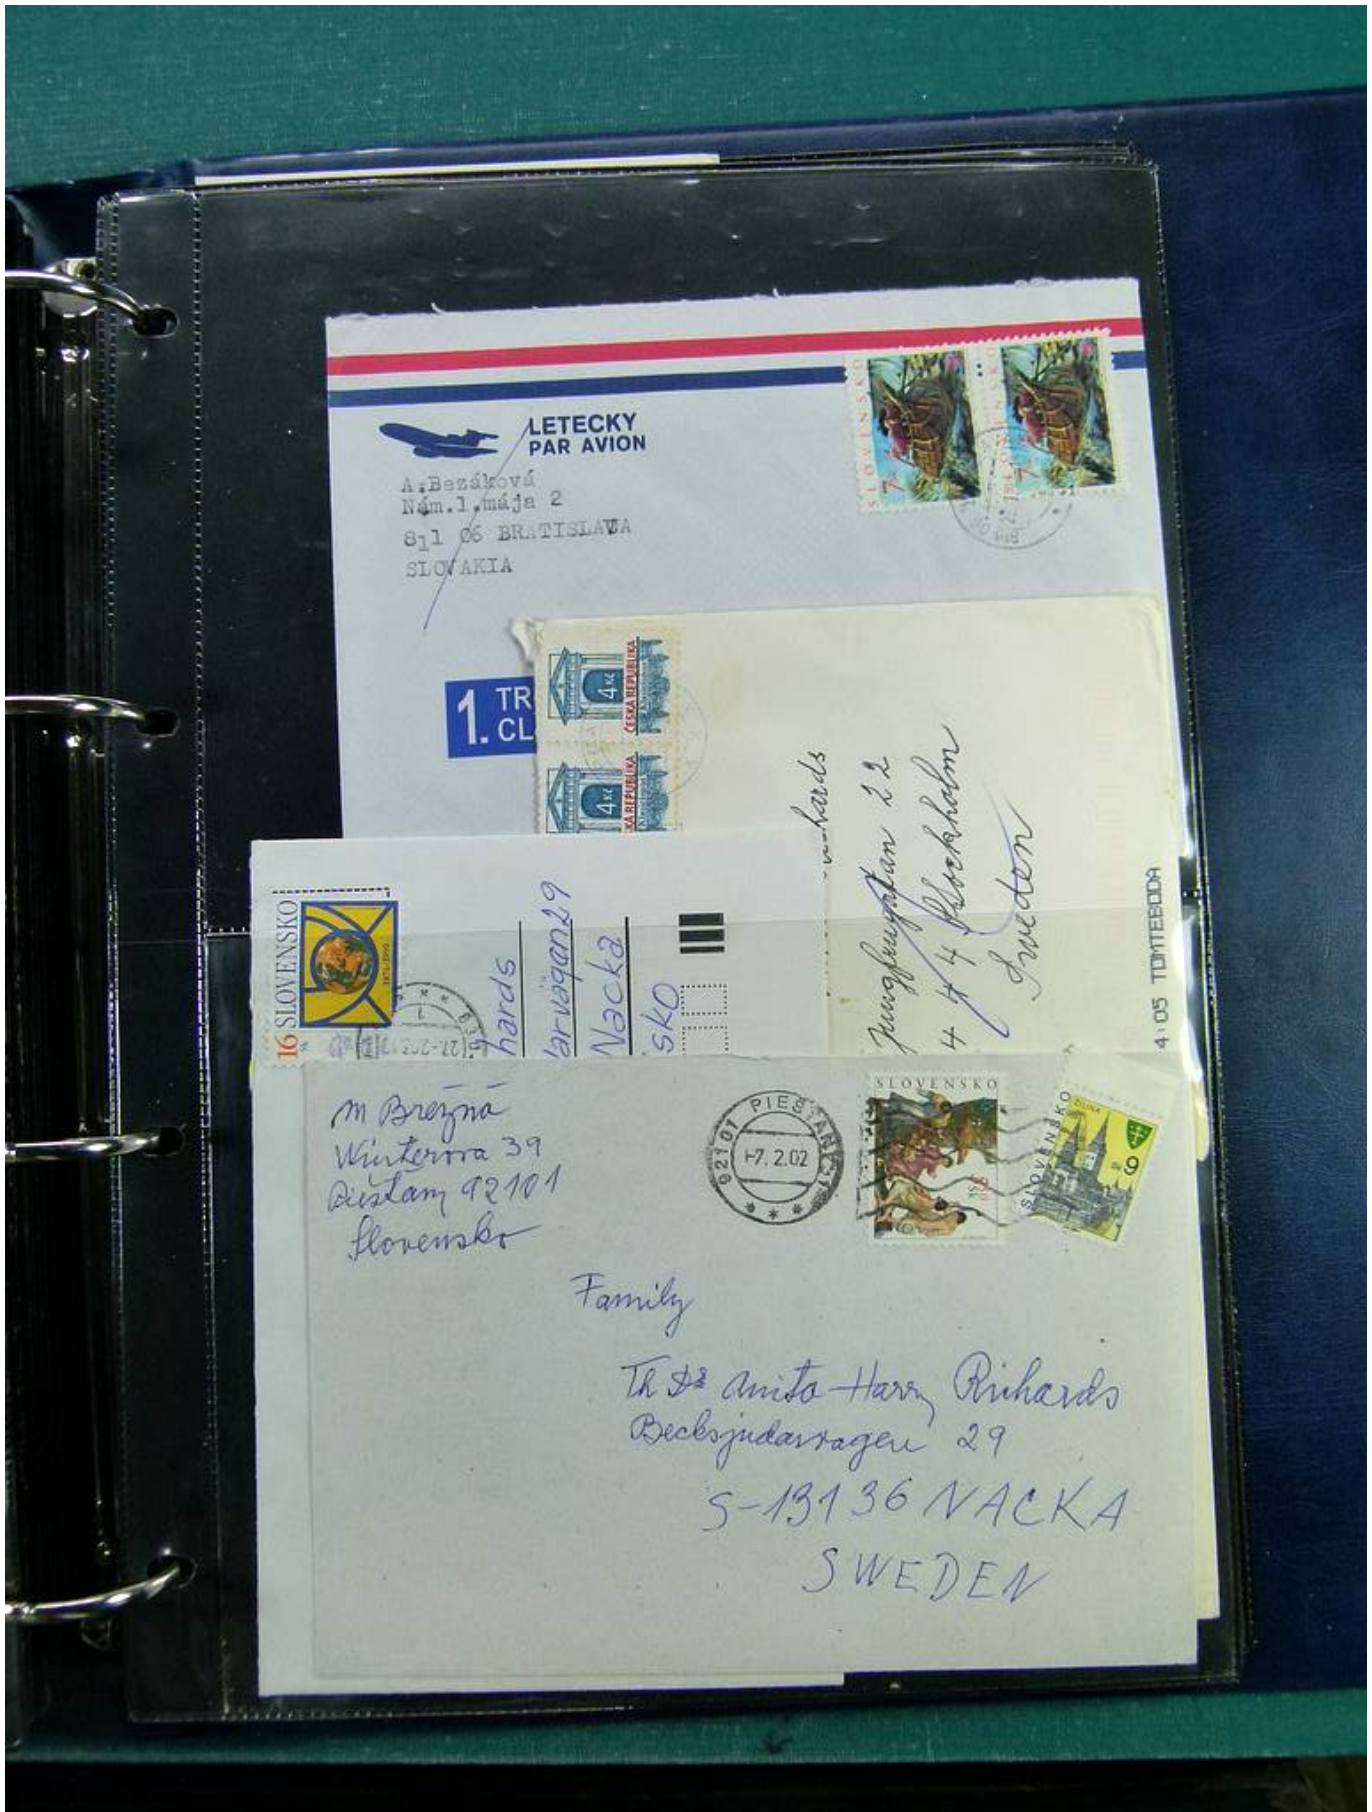 LETECKY
PAR AVION
A.Bezáková
Nám.1.mája 2
811 06 BRATISLAVA
SLOVAKIA
SLOVENSKO
7
SLOVENSKO
7
1. TR
CL
4 Kč
ČESKÁ REPUBLIKA
4 Kč
KÁ REPUBLIKA
hards
Jungfrugatan 22
4 4 4 Stockholm
Sweden
4:05 TOMTEBODA
16 SLOVENSKO
hards
arvägan29
Nacka
sko
M Brezná
Winterova 39
Piešťany 92101
Slovensko
92101 PIEŠŤANY 1
-7.2.02
SLOVENSKO
SLOVENSKO
ŽILINA
9
Family
Th Dr Anita-Harry Richards
Becksjudarvagen 29
S-13136 NACKA
SWEDEN